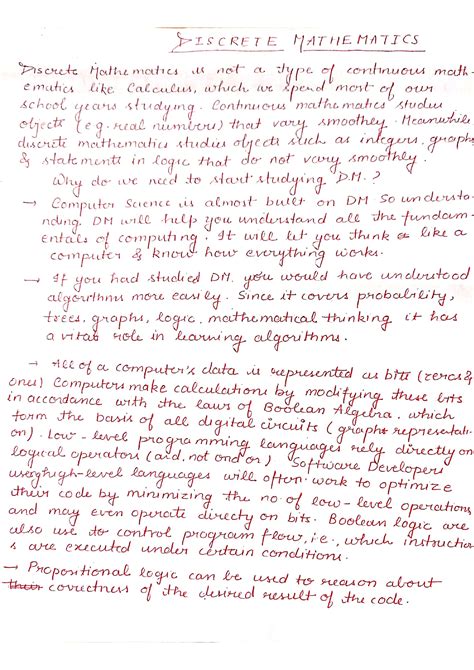 DISCRETE MATHEMATICS
Discrete Mathematics is not a type of continuous math-
ematics like Calculus, which we spend most of our
school years studying. Continuous mathematics studies
objects (e.g. real numbers) that vary smoothly. Meanwhile
discrete mathematics studies objects such as integers, graphs
& statements in logic that do not vary smoothly.
Why do we need to start studying D.M.?
→ Computer Science is almost built on DM So understa-
nding DM will help you understand all the fundam-
entals of computing. It will let you think as like a
computer & know how everything works.
→ If you had studied DM, you would have understood
algorithms more easily. Since it covers probability,
trees, graphs, logic, mathematical thinking it has
a vital role in learning algorithms.
→ All of a computer's data is represented as bits (zeros &
ones) Computers make calculations by modifying these bits
in accordance with the laws of Boolean Algebra, which
form the basis of all digital circuits (graphs representati-
on). Low-level programming languages rely directly on
logical operators (and, not and or) Software Developers
using high-level languages will often work to optimize
their code by minimizing the no of low-level operations
and may even operate directy on bits. Boolean logic are
also use to control program flow, i.e., which instruction
s are executed under certain conditions.
→ Propositional logic can be used to reason about
their correctness of the desired result of the code.